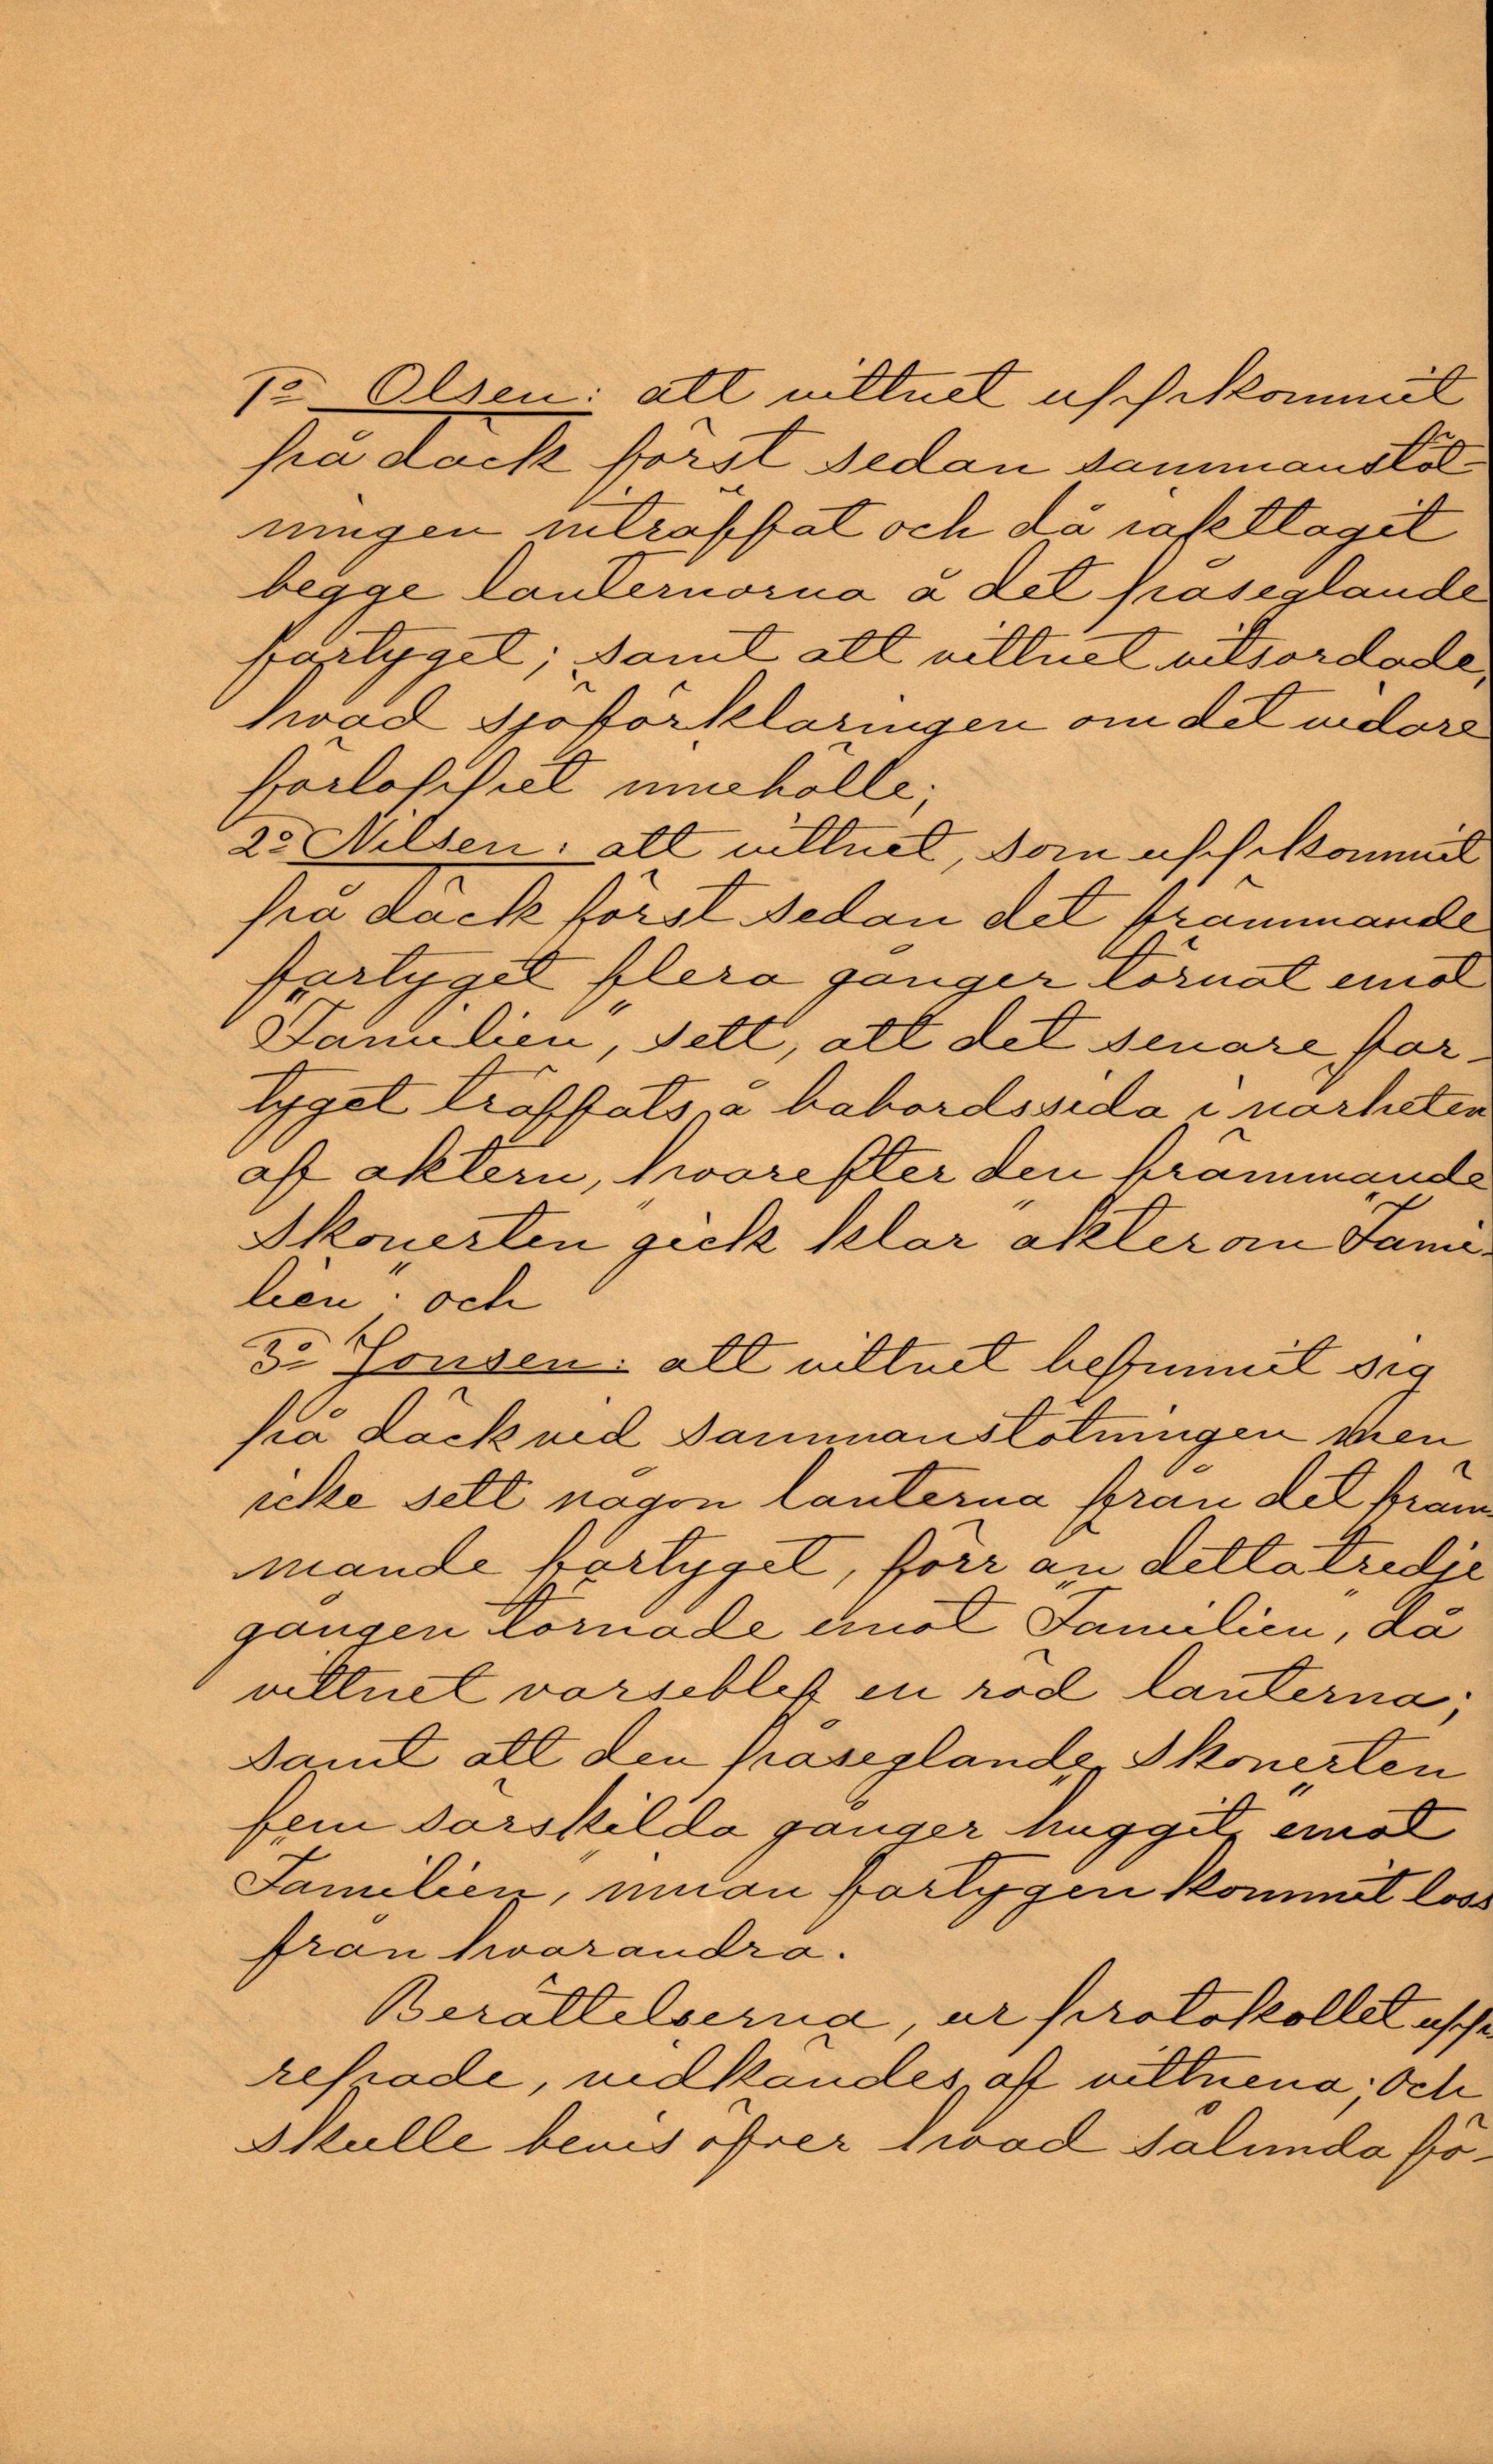 1º Olsen: att vittnet uppkommit
på däck först sedan sammanstöt-
ningen inträffat och då iakttagit
begge lanternorna å det påseglande
fartyget; samt att vittnet vitsordade,
hvad sjöförklaringen om det vidare
förloppet innehölle;
2º Nilsen: att vittnet, som uppkommit
på däck först sedan det främmande
fartyget flera gånger törnat emot
"Familien", sett, att det senare far-
tyget träffats å babordssida i närheten
af aktern, hvarefter den främmande
skonerten "gick klar" akter om "Fami-
lien"; och
3º Jonsen: att vittnet befunnit sig
på däck vid sammanstötningen men
icke sett någon lanterna från det främ-
mande fartyget, förr än detta tredje
gången törnade emot "Familien", då
vittnet varseblef en röd lanterna;
samt att den påseglande skonerten
fem särskilda gånger "huggit" emot
"Familien", innan fartygen kommit loss
från hvarandra.
Berättelserna, ur protokollet upp-
repade, vidkändes af vittnena; och
skulle bevis öfver hvad sålunda fö-